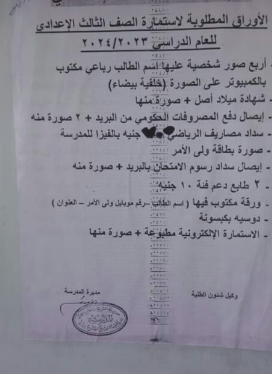 الأوراق المطلوبة لاستمارة الصف الثالث الإعدادى
للعام الدراسي ٢٠٢٤/٢٠٢٣
- أربع صور شخصية عليها اسم الطالب رباعي مكتوب
بالكمبيوتر على الصورة (خلفية بيضاء)
- شهادة ميلاد أصل + صورة منها
- إيصال دفع المصروفات الحكومي من البريد + ٢ صورة منه
- سداد مصاريف الرياضي جنيه بالفيزا للمدرسة
- صورة بطاقة ولى الأمر
- إيصال سداد رسوم الامتحان بالبريد + صورة منه
- ٢ طابع دعم فئة ١٠ جنيه
- ورقة مكتوب فيها ( اسم الطالب –رقم موبايل ولى الأمر – العنوان )
- دوسيه بكبسونة
- الاستمارة الإلكترونية مطبوعة + صورة منها
وكيل شئون الطلبة
مديرة المدرسة